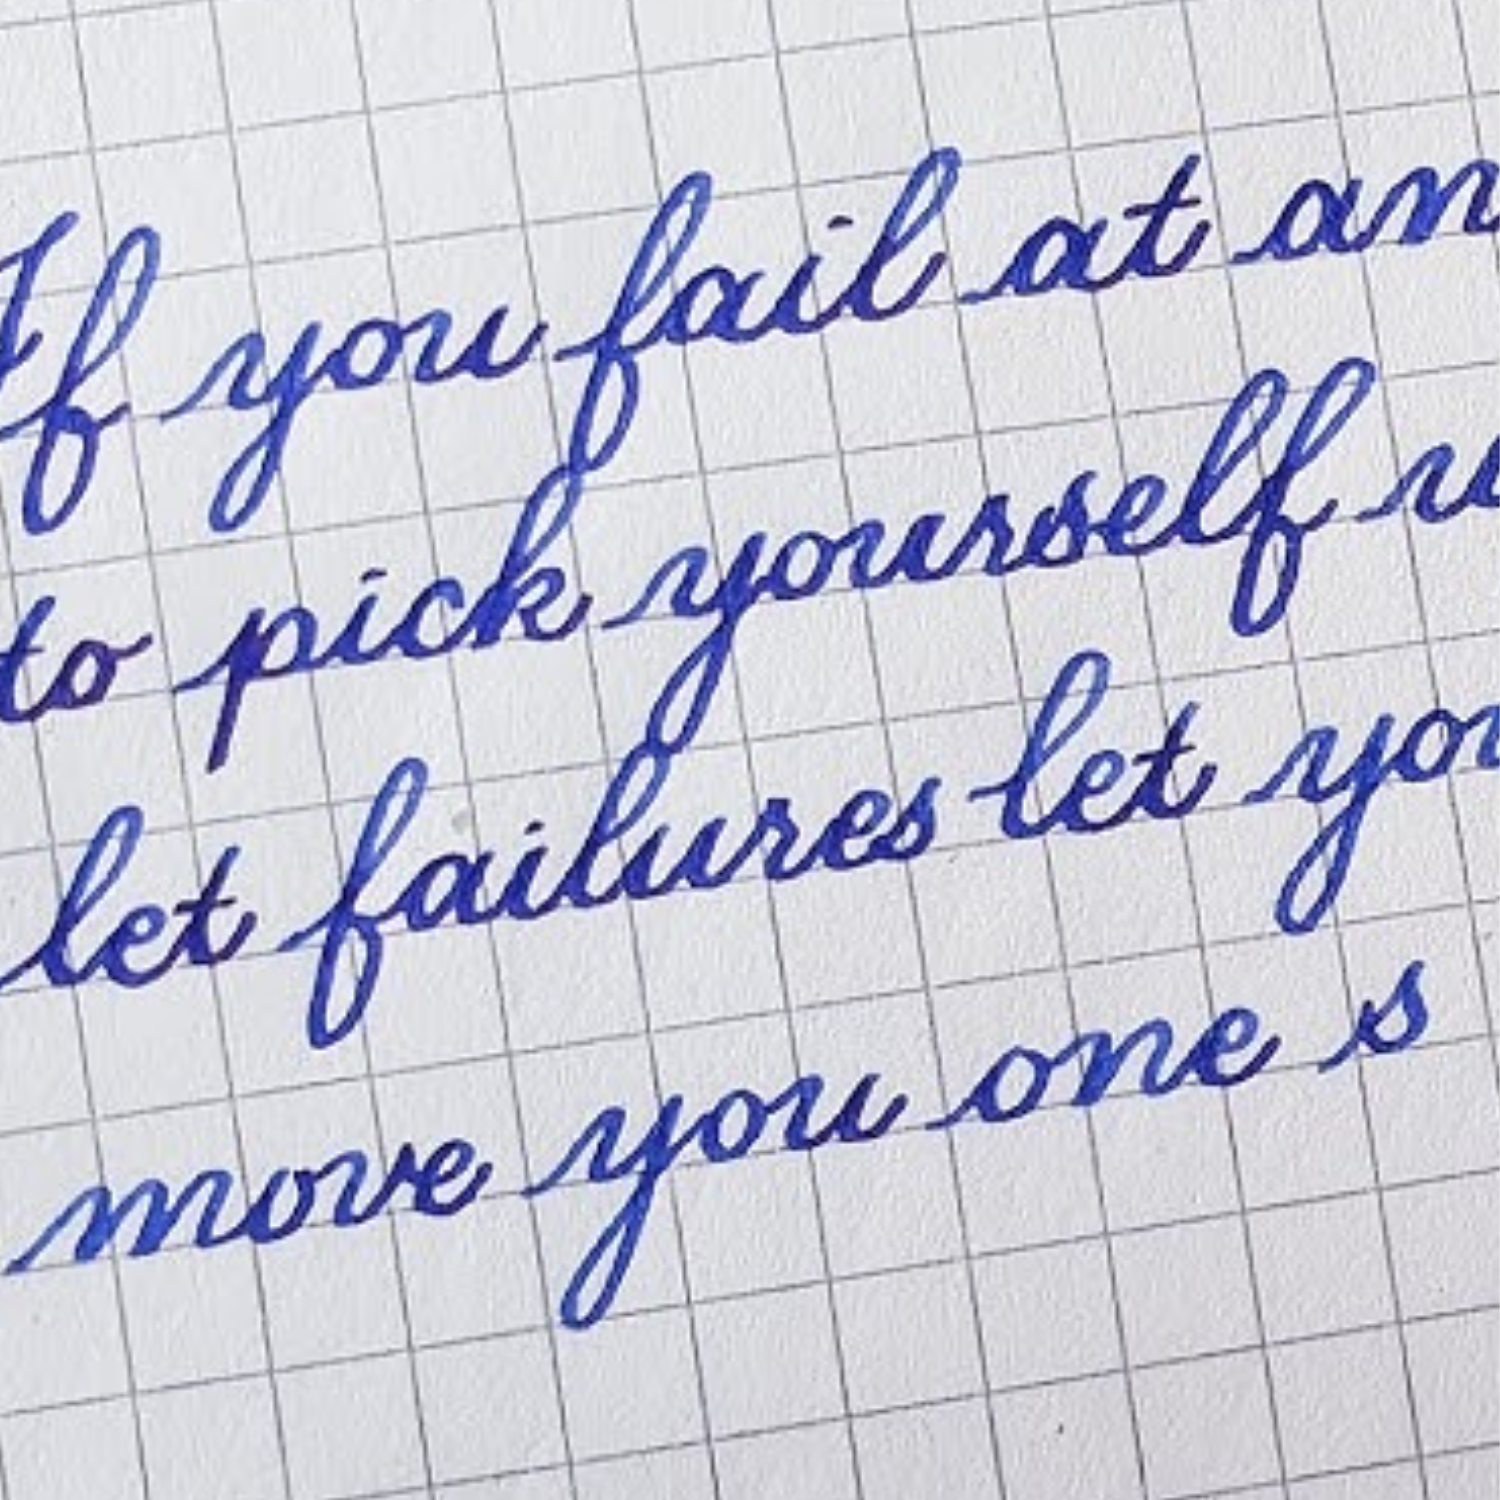 If you fail at an
to pick yourself u
let failures let you
move you one s